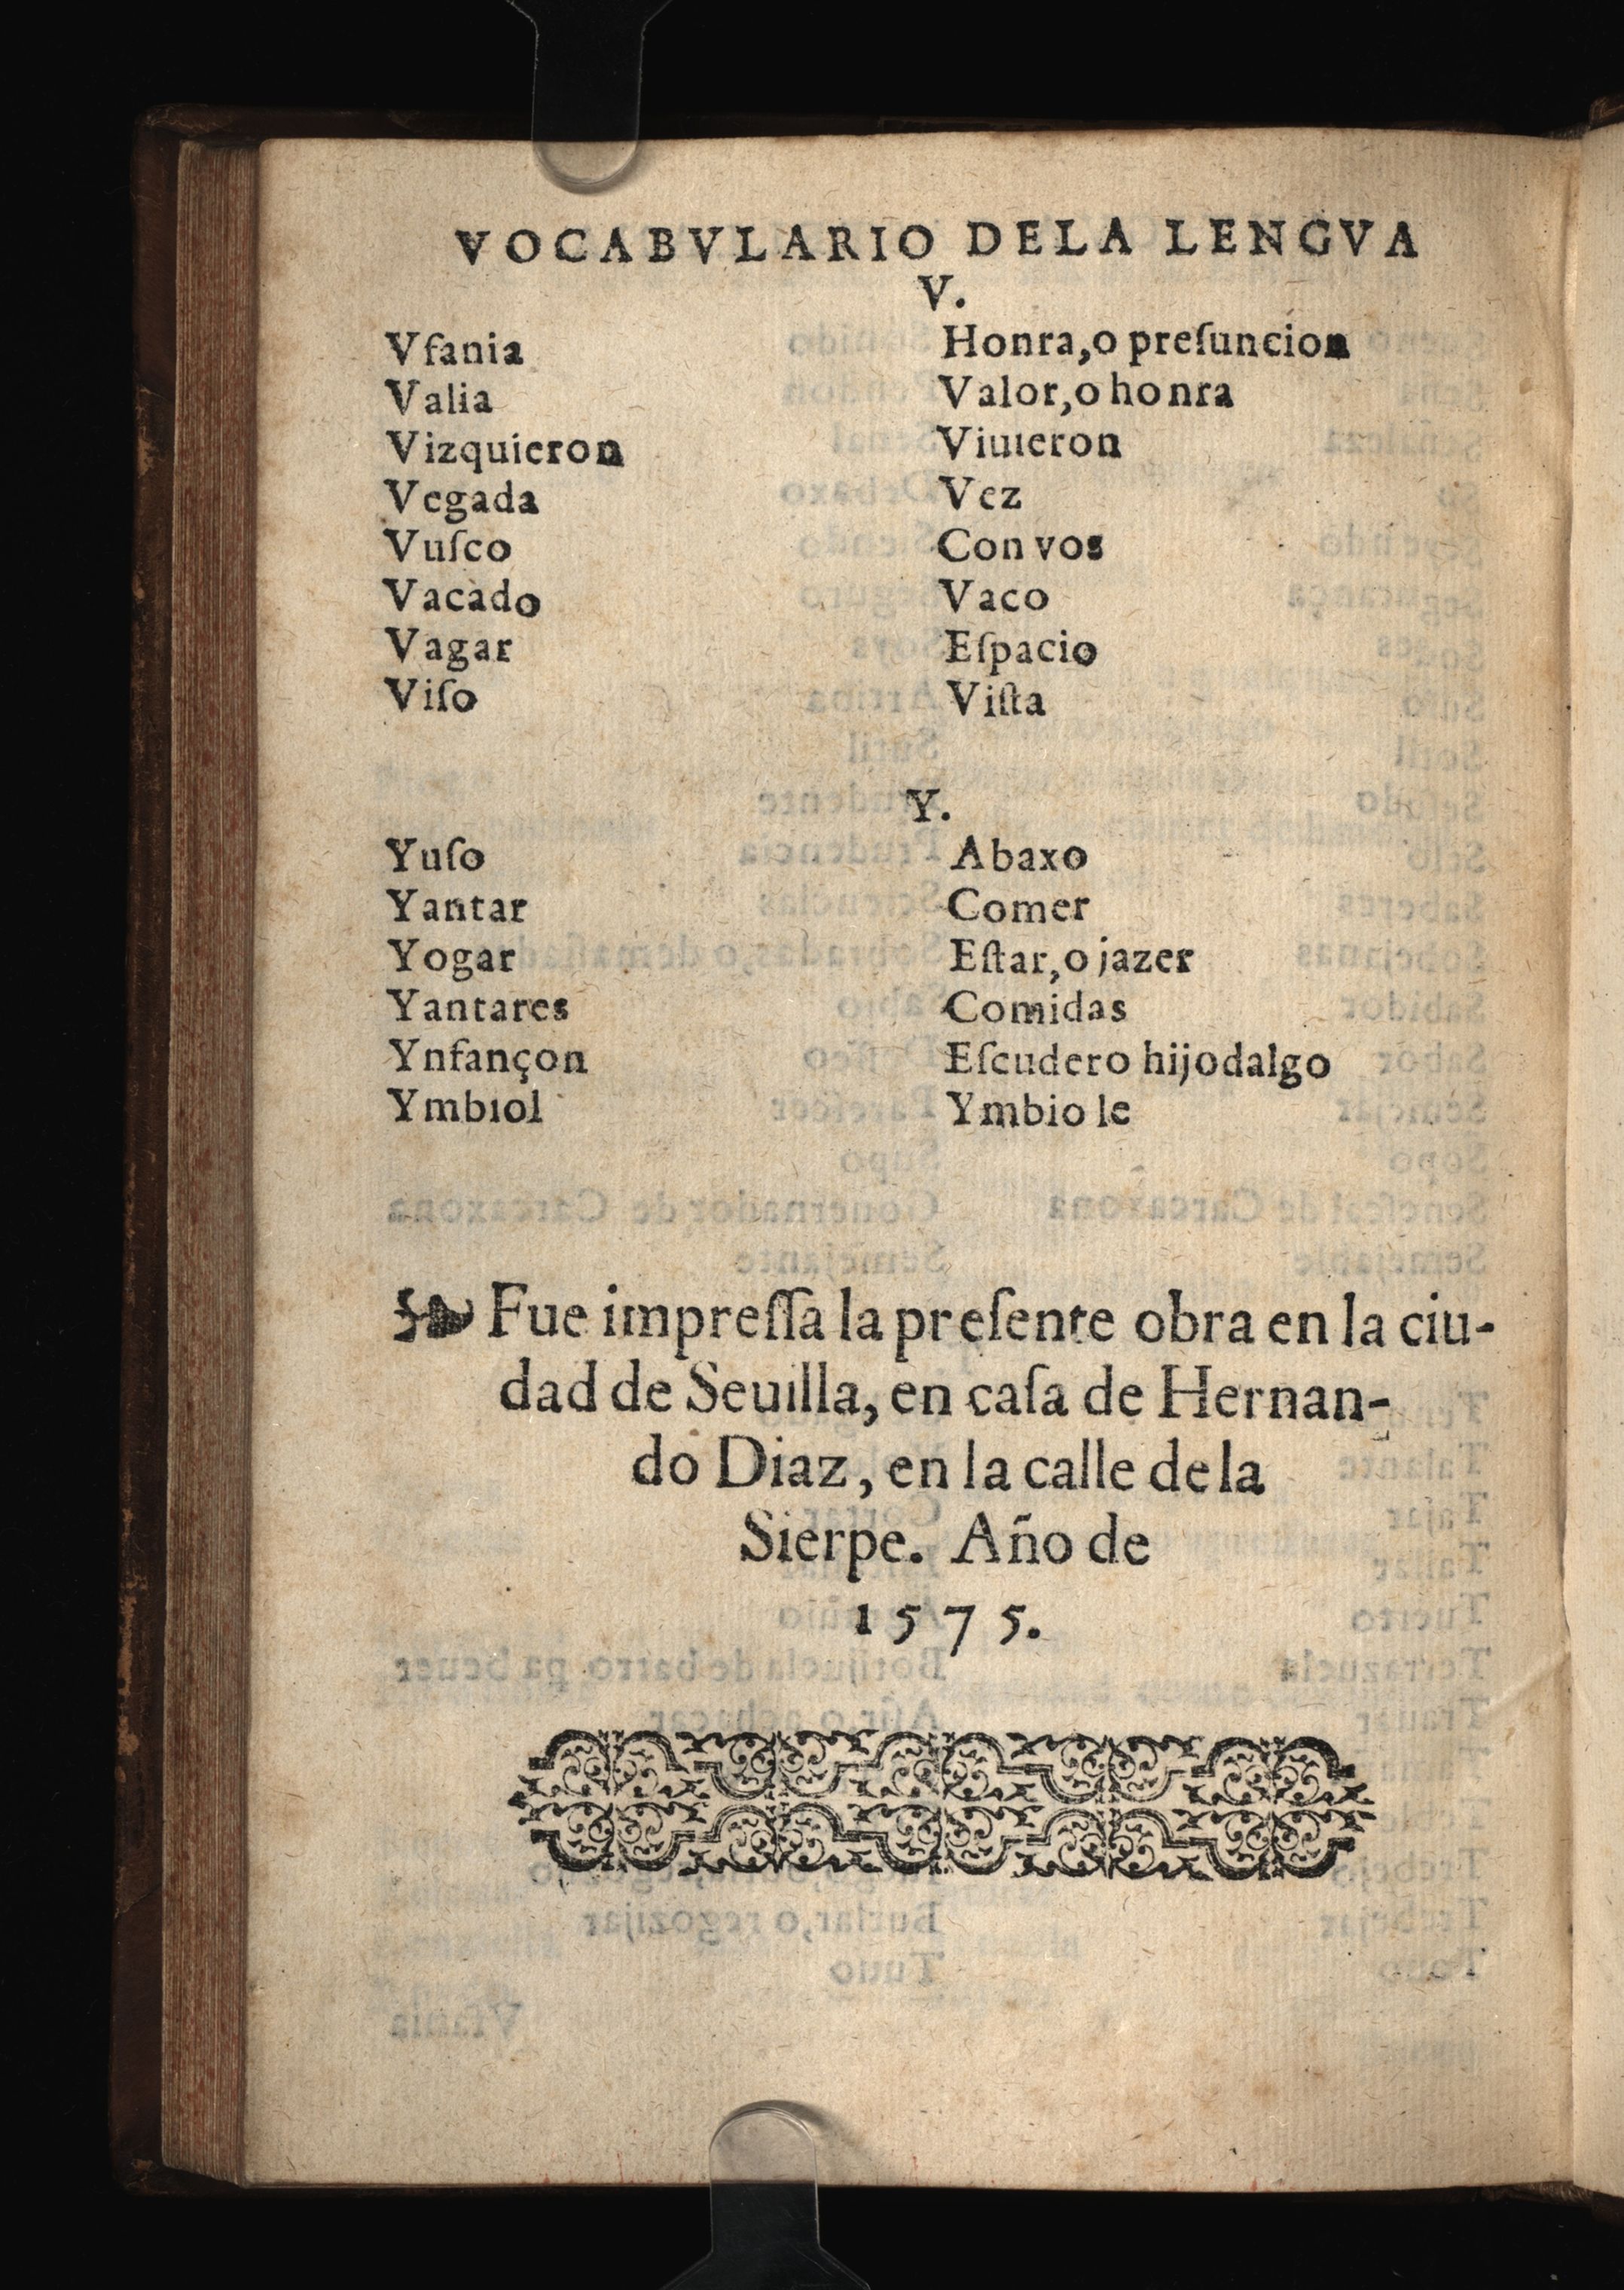 VOCABVLARIO DELA LENGVA
V.
Vfania Honra,o preſuncion
Valia Valor,o honra
Vizquieron Viuieron
Vegada Vez
Vuſco Con vos
Vacado Vaco
Vagar Eſpacio
Viſo Viſta
Y.
Yuſo Abaxo
Yantar Comer
Yogar Eſtar,o jazer
Yantares Comidas
Ynfançon Eſcudero hijodalgo
Ymbiol Ymbio le
Fue impreſſa la preſente obra en la ciu-
dad de Seuilla, en caſa de Hernan-
do Diaz, en la calle dela
Sierpe. Año de
1575.